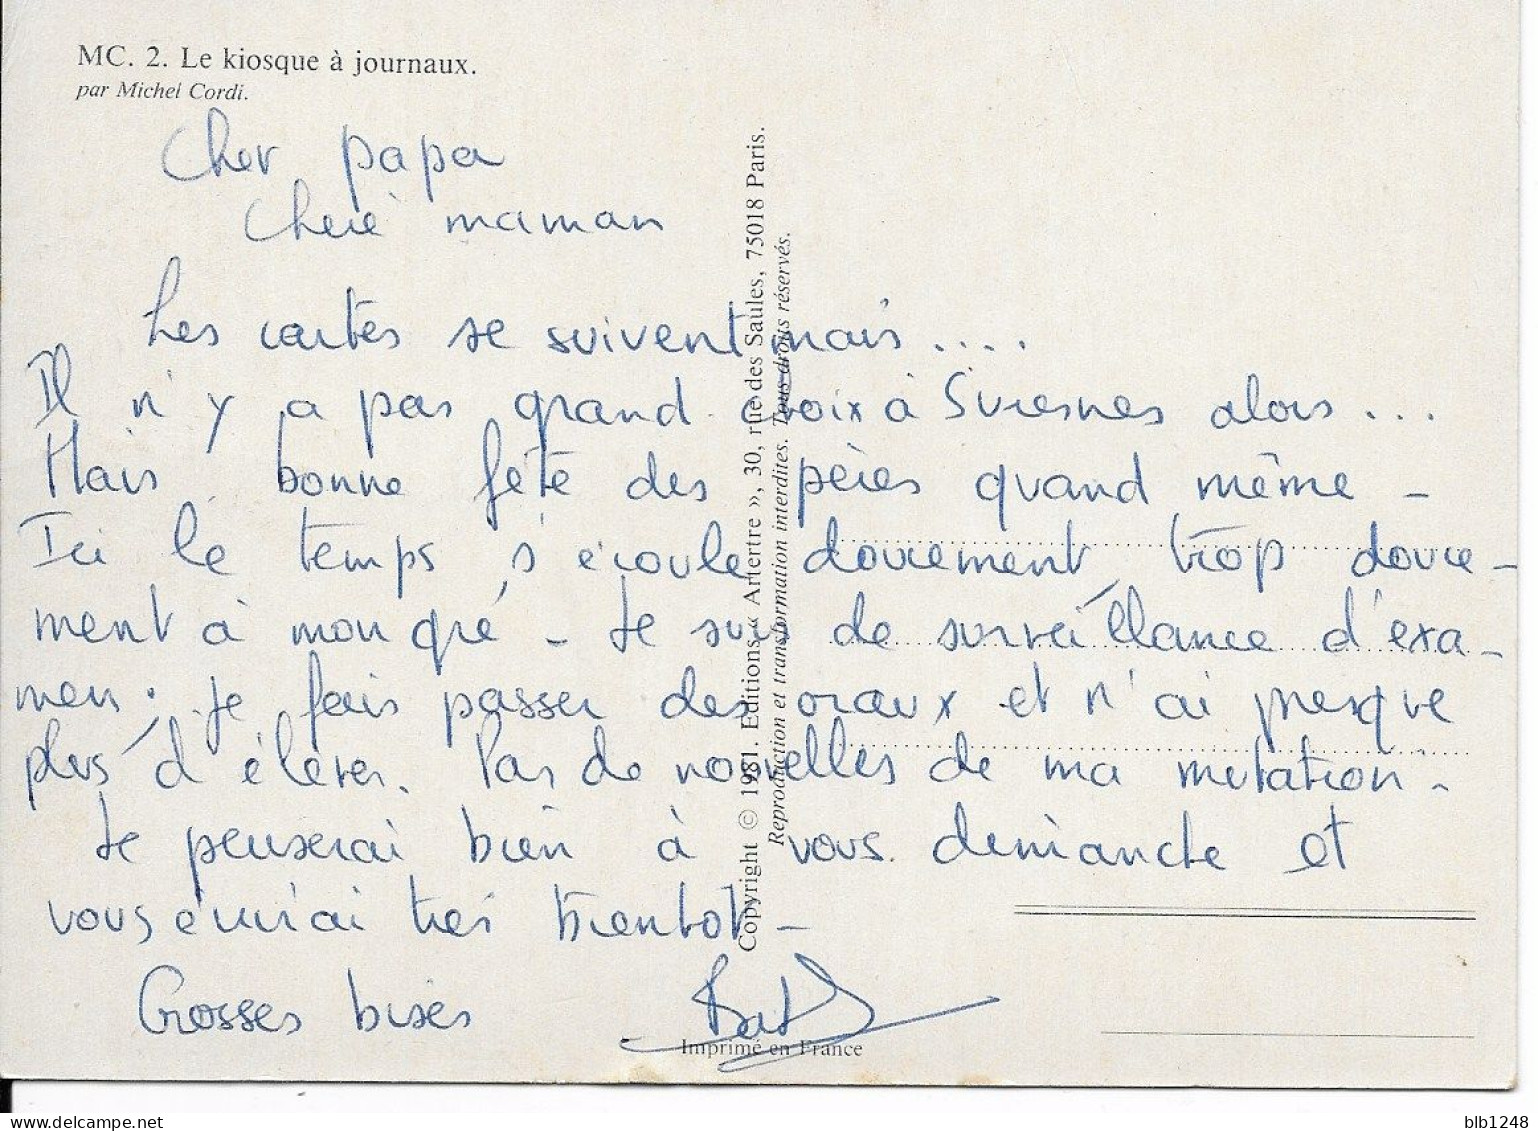 MC. 2. Le kiosque à journaux.
par Michel Cordi.
Cher papa
Chère maman
Les cartes se suivent mais....
Il n'y a pas grand choix à Suresnes alors...
Mais bonne fête des pères quand même -
Ici le temps s'écoule doucement, trop douce-
ment à mon gré - Je suis de surveillance d'exa-
men. Je fais passer des oraux et n'ai presque
plus d'élèves. Pas de nouvelles de ma mutation.
Je penserai bien à vous dimanche et
vous écrirai très bientôt -
Grosses bises
Copyright © 1981. Editions « Artertre », 30, rue des Saules, 75018 Paris.
Reproduction et transformation interdites. Tous droits réservés.
Imprimé en France
delcampe.net
blb1248